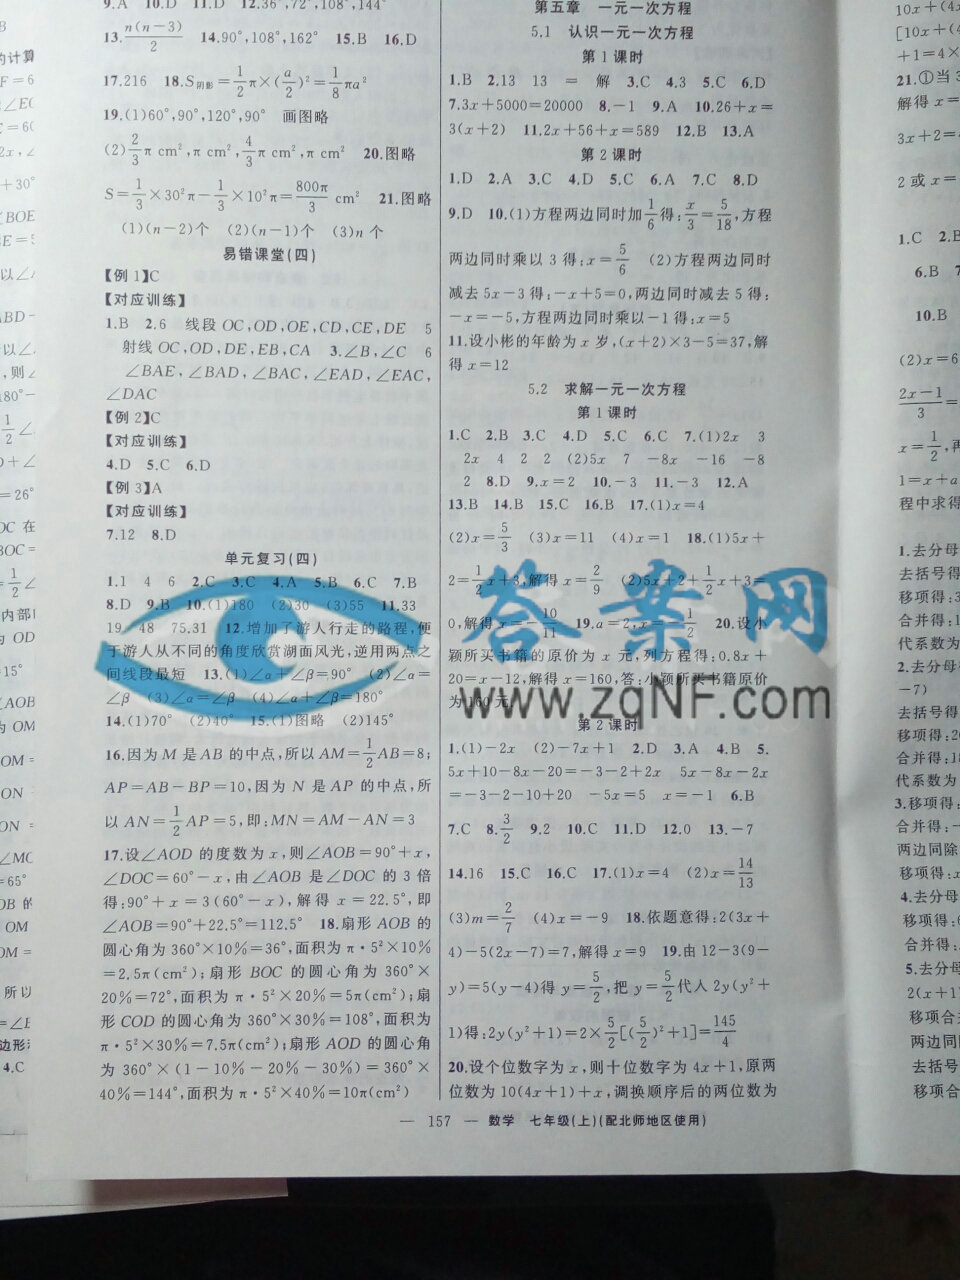 9.A 10.D 11.D 12.36°,72°,108°,144°
13.n(n-3)/2 14.90°,108°,162° 15.B 16.D
17.216 18.S阴影=1/2π×(a/2)²=1/8πa²
19.(1)60°,90°,120°,90° 画图略
(2)2/3π cm²,π cm²,4/3π cm²,π cm² 20.图略
S=1/3×30²π-1/3×10²π=800π/3 cm² 21.图略
(1)(n-2)个 (2)(n-1)个 (3)n个
易错课堂(四)
【例1】C
【对应训练】
1.B 2.6 线段OC,OD,OE,CD,CE,DE 5
射线OC,OD,DE,EB,CA 3.∠B,∠C 6
∠BAE,∠BAD,∠BAC,∠EAD,∠EAC,
∠DAC
【例2】C
【对应训练】
4.D 5.C 6.D
【例3】A
【对应训练】
7.12 8.D
单元复习(四)
1.1 4 6 2.C 3.C 4.A 5.B 6.C 7.B
8.D 9.B 10.(1)180 (2)30 (3)55 11.33
19 48 75.31 12.增加了游人行走的路程,便
于游人从不同的角度欣赏湖面风光,逆用两点之
间线段最短 13.(1)∠α+∠β=90° (2)∠α=
∠β (3)∠α=∠β (4)∠α+∠β=180°
14.(1)70° (2)40° 15.(1)图略 (2)145°
16.因为M是AB的中点,所以AM=1/2AB=8;
AP=AB-BP=10,因为N是AP的中点,所
以AN=1/2AP=5,即:MN=AM-AN=3
17.设∠AOD的度数为x,则∠AOB=90°+x,
∠DOC=60°-x,由∠AOB是∠DOC的3倍
得:90°+x=3(60°-x),解得x=22.5°,即
∠AOB=90°+22.5°=112.5° 18.扇形AOB的
圆心角为360°×10%=36°,面积为π·5²×10%
=2.5π(cm²);扇形BOC的圆心角为360°×
20%=72°,面积为π·5²×20%=5π(cm²);扇
形COD的圆心角为360°×30%=108°,面积为
π·5²×30%=7.5π(cm²);扇形AOD的圆心角
为360°×(1-10%-20%-30%)=360°×
40%=144°,面积为π·5²×40%=10π(cm²)
第五章 一元一次方程
5.1 认识一元一次方程
第1课时
1.B 2.13 13 = 解 3.C 4.3 5.C 6.D
7.3x+5000=20000 8.-1 9.A 10.26+x=
3(x+2) 11.2x+56+x=589 12.B 13.A
第2课时
1.D 2.A 3.C 4.D 5.C 6.A 7.C 8.D
9.D 10.(1)方程两边同时加1/6得:x/3=5/18,方程
两边同时乘以3得:x=5/6 (2)方程两边同时
减去5x-3得:-x+5=0,两边同时减去5得:
-x=-5,方程两边同时乘以-1得:x=5
11.设小彬的年龄为x岁,(x+2)×3-5=37,解
得x=12
5.2 求解一元一次方程
第1课时
1.C 2.B 3.C 4.D 5.C 6.C 7.(1)2x 3
2x 4 2 2 (2)5x 7 -8x -16 -8
2 8.D 9.x=2 10.-3 11.-3 12.A
13.B 14.B 15.C 16.B 17.(1)x=4
(2)x=5/3 (3)x=11 (4)x=1 18.(1)5x+
2=1/2x+3,解得x=2/9 (2)5x+2+1/2x+3=
0,解得x=-10/11 19.a=2,x=-1/2 20.设小
颖所买书籍的原价为x元,列方程得:0.8x+
20=x-12,解得x=160,答:小颖所买书籍原价
为160元.
第2课时
1.(1)-2x (2)-7x+1 2.D 3.A 4.B 5.
5x+10-8x-20=-3-2+2x 5x-8x-2x
=-3-2-10+20 -5x=5 x=-1 6.B
7.C 8.3/2 9.2 10.C 11.D 12.0 13.-7
14.16 15.C 16.C 17.(1)x=4 (2)x=14/13
(3)m=2/7 (4)x=-9 18.依题意得:2(3x+
4)-5(2x-7)=7,解得x=9 19.由12-3(9-
y)=5(y-4)得y=5/2,把y=5/2代入2y(y²+
1)得:2y(y²+1)=2×5/2[(5/2)²+1]=145/4
20.设个位数字为x,则十位数字为4x+1,原两
位数为10(4x+1)+x,调换顺序后的两位数为
— 157 — 数学 七年级(上)(配北师地区使用)
答案网
www.zqNF.com